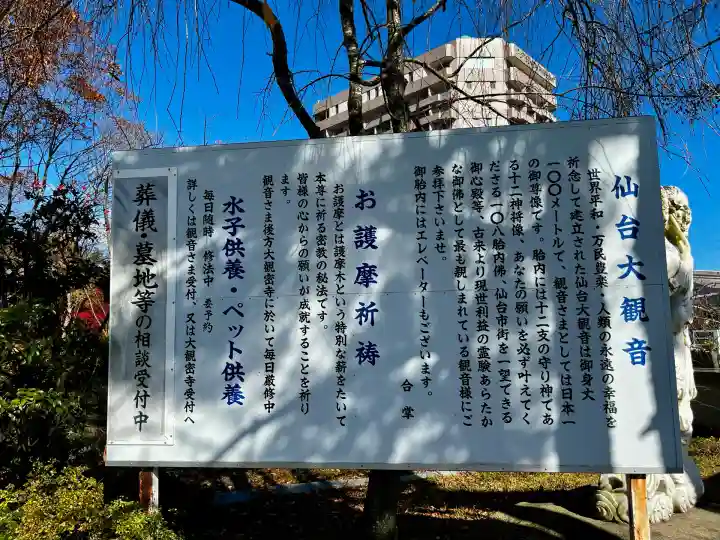 仙台大観音
世界平和・万民豊楽・人類の永遠の幸福を
祈念して建立された仙台大観音は御身丈
一〇〇メートルで、観音さまとしては日本一
の御尊像です。胎内には十二支の守り神であ
る十二神将像、あなたの願いを必ず叶えてく
ださる一〇八胎内佛、仙台市街を一望できる
御心殿等、古来より現世利益の霊験あらたか
な御佛として最も親しまれている観音様にご
参拝下さいませ。
御胎内にはエレベーターもございます。
合掌
お護摩祈祷
お護摩とは護摩木という特別な薪をたいて
本尊に祈る密教の秘法です。
皆様の心からの願いが成就することを祈り
ます。
観音さま後方大観密寺に於いて毎日厳修中
水子供養・ペット供養
毎日随時 修法中 要予約
詳しくは観音さま受付、又は大観密寺受付へ
葬儀・墓地等の相談受付中